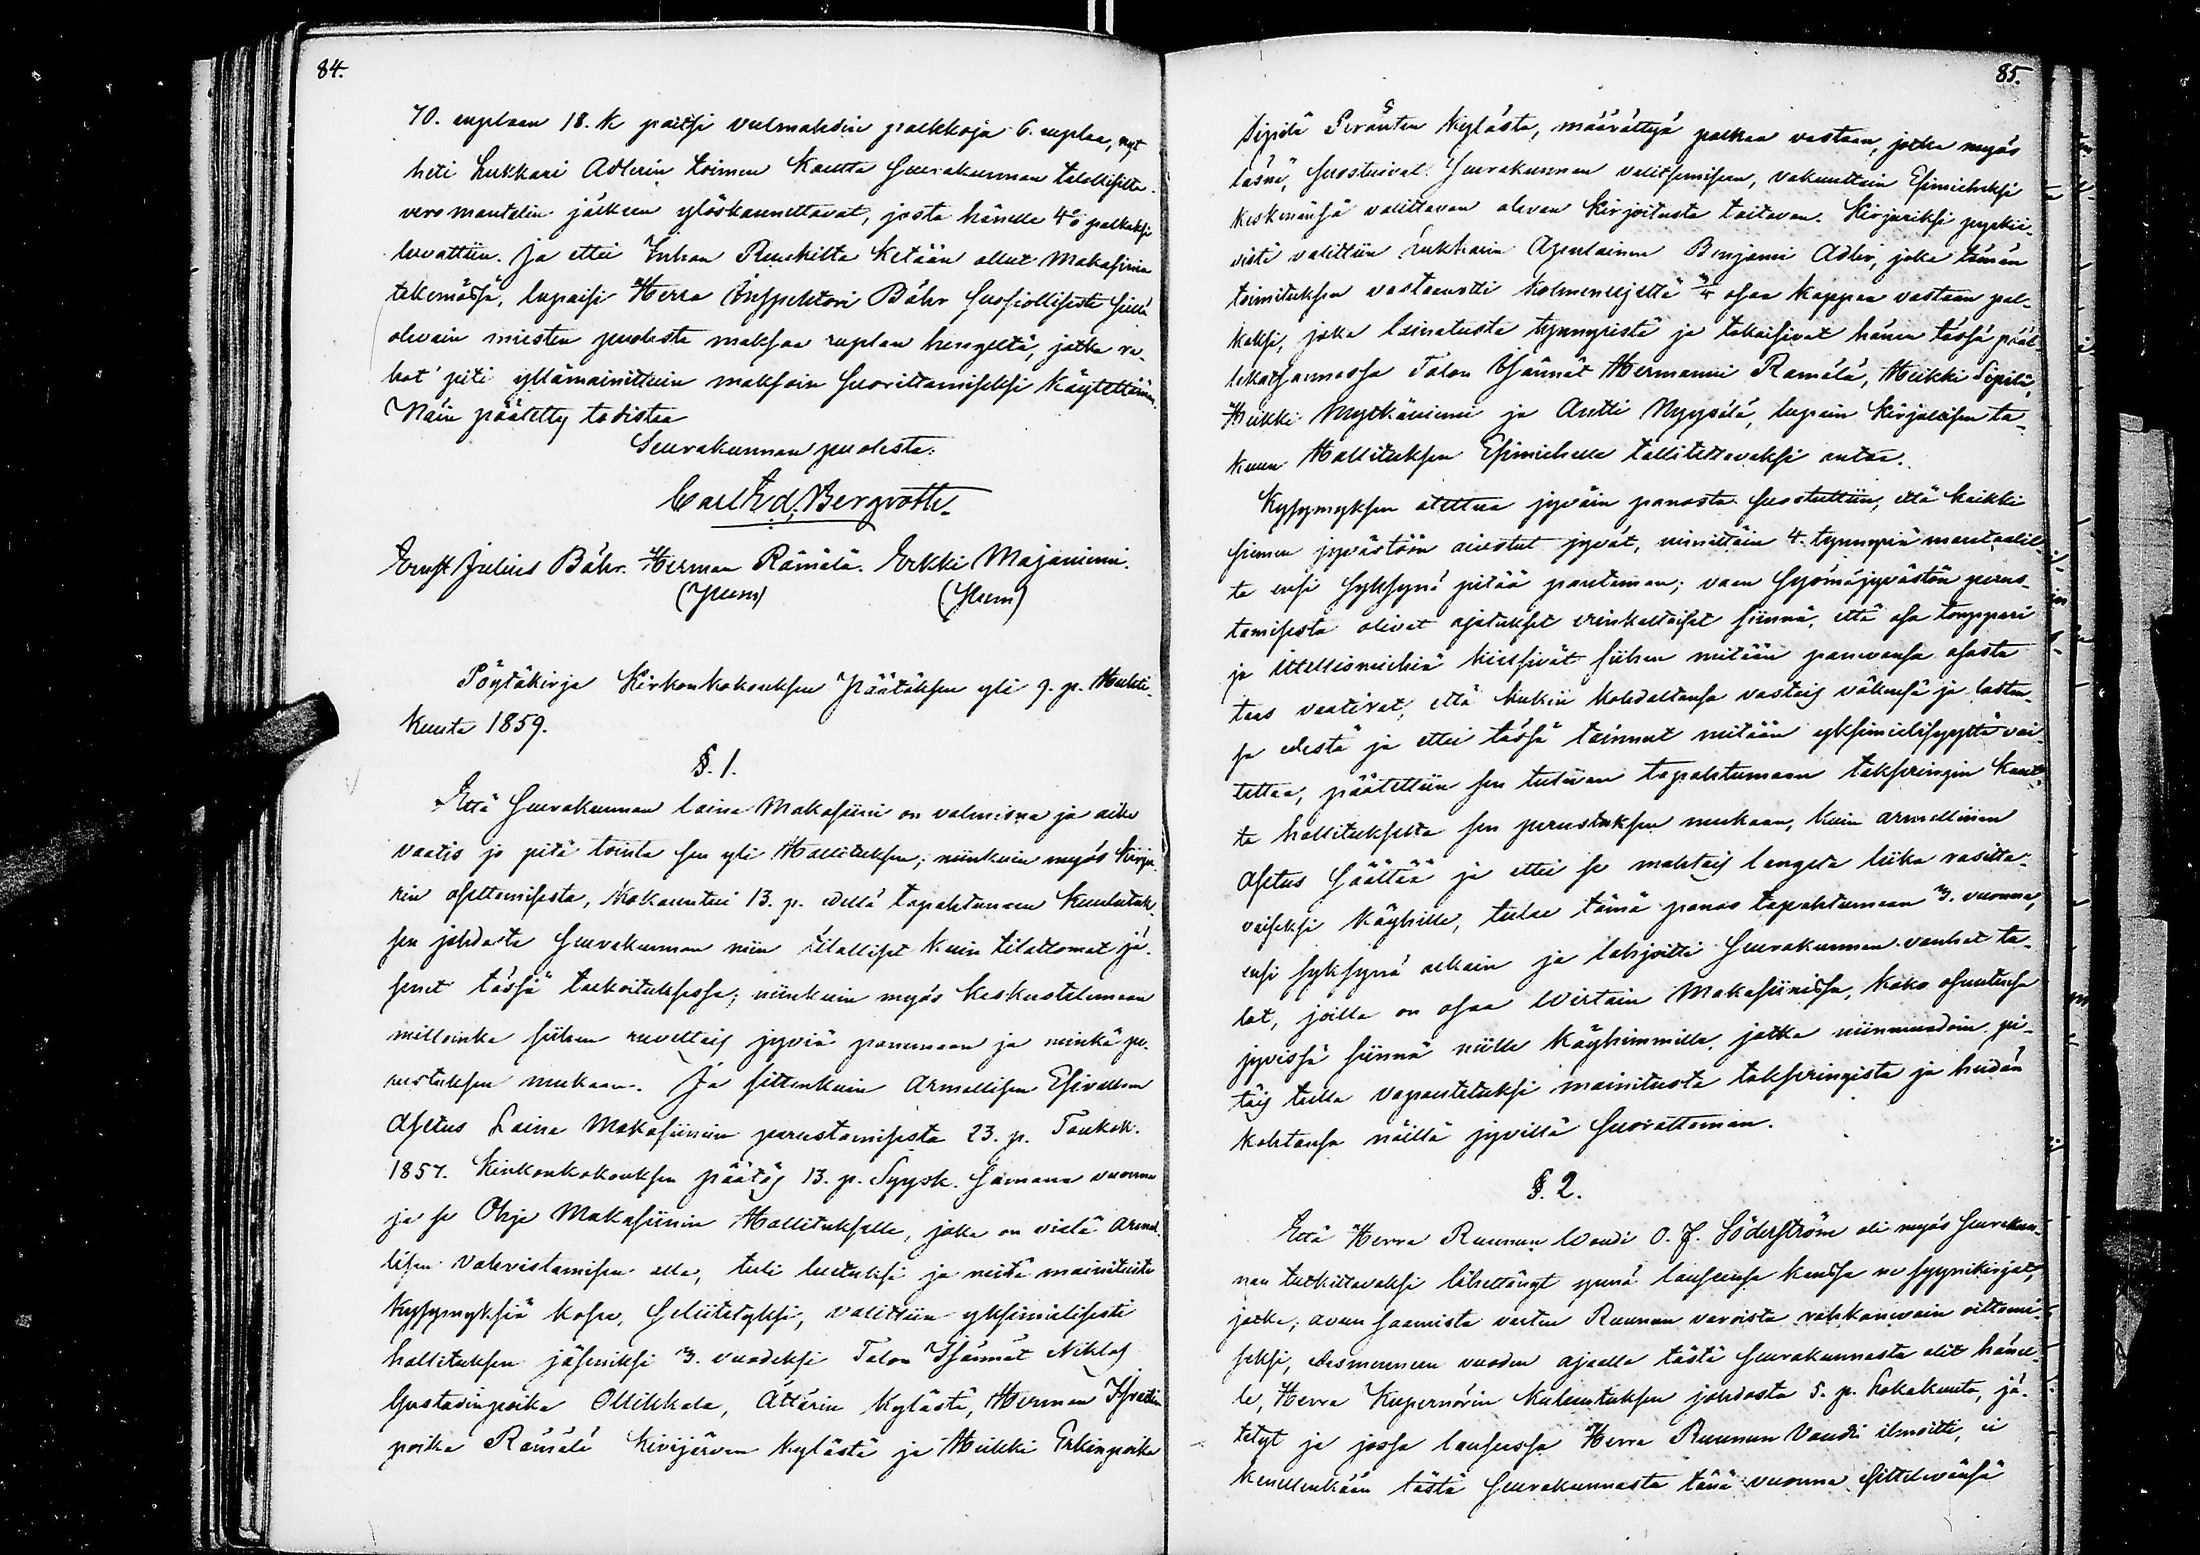 84.
70. ruplaan 18. k paitsi vielmaksein palkkoja 6. ruplaa, nyt
heti Lukkari Adlerin toimen kautta Seurakunnan talollisilta
veromantalin jälkeen ylöskannettavat, josta hänelle 4% palkaksi
luvattiin. Ja ettei Inhan Ruukilta ketään ollut Makasinia
tekemässä, lupaisi Herra Inspehtori Bähr suosiollisesti siellä
olevain miesten puolesta maksaa ruplan hengeltä, jotka ra-
hat piti yllämainittuin maksoin suorittamiseksi käytettämän.
Näin päätetty todistaa
Seurakunnan puolesta:
Carl Ed. Bergroth.
Ernst Julius Bähr. Herman Rämälä. Erkki Majaniemi.
(Puum) (Puum)
Pöytäkirja Kirkonkokouksen Päätöksen yli 9. p. Huhti-
kuuta 1859.
§. 1.
Että Seurakunnan laina Makasiini on valmisna ja aika
vaatis jo pitä tointa sen yli Hallituksen; niinkuin myös kirju-
rin asettamisesta, kokountui 13. p. edellä tapahtuneen kuulutuk-
sen johdosta Seurakunnan niin tilalliset kuin tilattomat jä-
senet tässä tarkoituksessa; niinkuin myös keskustelemaan
milloinka siihen ruvettais jyviä panemaan ja minkä pe-
rustuksen mukaan. Ja sittenkuin Armollisen Esivallan
Asetus Laina Makasiinin perustamisesta 23. p. Toukok.
1857. Kirkonkokouksen päätös 13. p. Syysk. samana vuonna
ja se Ohje Makasiinin Hallitukselle, joka on vielä Armol-
lisen vahvistamisen alla, tuli luetuksi ja neitä mainituita
kysymyksiä koske, selitetyksi, valittiin yksimielisesti
hallituksen jäseniksi 3. vuodeksi Talon Isännät Niklas
Gustavinpoika Ollikkala, Ättärin kylästä, Herman
poika Rämälä Kivijärven kylästä ja Heikki Erkinpoika
85.
Sipilä Peränten kylästä, määrättyä palkaa vastaan, jotka myös
läsnä, suostuivat Seurakunnan valitsemiseen, vakuuttain Esimieheksi
keskenänsä valittavan olevan kirjoitusta taitavan. Kirjuriksi pyrkii-
vistä valittiin Lukkarin Apulainen Benjami Adler, joka tämän
toimituksen vastaanotti kolmeneljättä 3/4 osaa kappaa vastaan pal-
kaksi, joka lainatusta tynnyristä ja takaisivat hänen tässä pääl-
likatsannossa Talon Isännät Hermanni Rämälä, Heikki Sipilä,
Heikki Mytkäniemi ja Antti Nyysölä, lupain kirjallisen ta-
kuun Hallituksen Esimiehelle tallitettavaksi antaa.
Kysymyksen otettua jyväin panosta suostuttiin, että kaikki
siemen jyvästöön aiwotut jyvät, nimittäin 4. tynnyriä mantaalil-
ta ensi syksynä pitää pantaman; vaan syömäjyvästön perus-
tamisesta olivat ajatukset erinkaltaiset siinnä, että osa torppari
ja itellismiehiä kielsivät siihen mitään panevansa osasta
taas vaativat, että kukin kohdaltansa vastais väkensä ja lasten-
sa edestä ja ettei tässä toinnut mitään yksimielisyyttä voi-
tettaa, päätettiin sen tulevan tapahtumaan takseringin kaut-
ta hallitukselta sen perustuksen mukaan, kuin armollinen
Asetus säättää ja ettei se mahtais langeta liika rasitta-
vaiseksi köyhille, tulee tämä panos tapahtumaan 3. vuonna,
ensi syksynä alkain ja lahjoitti Seurakunnan vanhat ta-
lat, joilla on osaa Wirtain Makasiinissa, koko osuutensa
jyvissä siinnä niille köyhimmille, jotka niinmuodoin pi-
täis tulla vapautetuksi mainitusta takseringista ja heidän
kohtansa näillä jyvillä suorattaman.
§. 2.
Että Herra Ruunun Woudi O. J. Söderström oli myös Seurakun-
nan tutkittavaksi lähettänyt ynnä lausunsa kanssa ne syynikirjat,
jotka, avun saamista varten Ruunun varoista, ruhkanevain viltomi-
seksi, edesmenneen vuoden ajalla tästä Seurakunnasta olit hänel-
le, Herra Kupernörin kulutuksen johdosta 5. p. Lokakuuta, jä-
tetyt ja jossa lausussa Herra Ruunun Voudi ilmoitti, ei
kenellenkään tästä Seurakunnasta tänä vuonna esittelevänsä